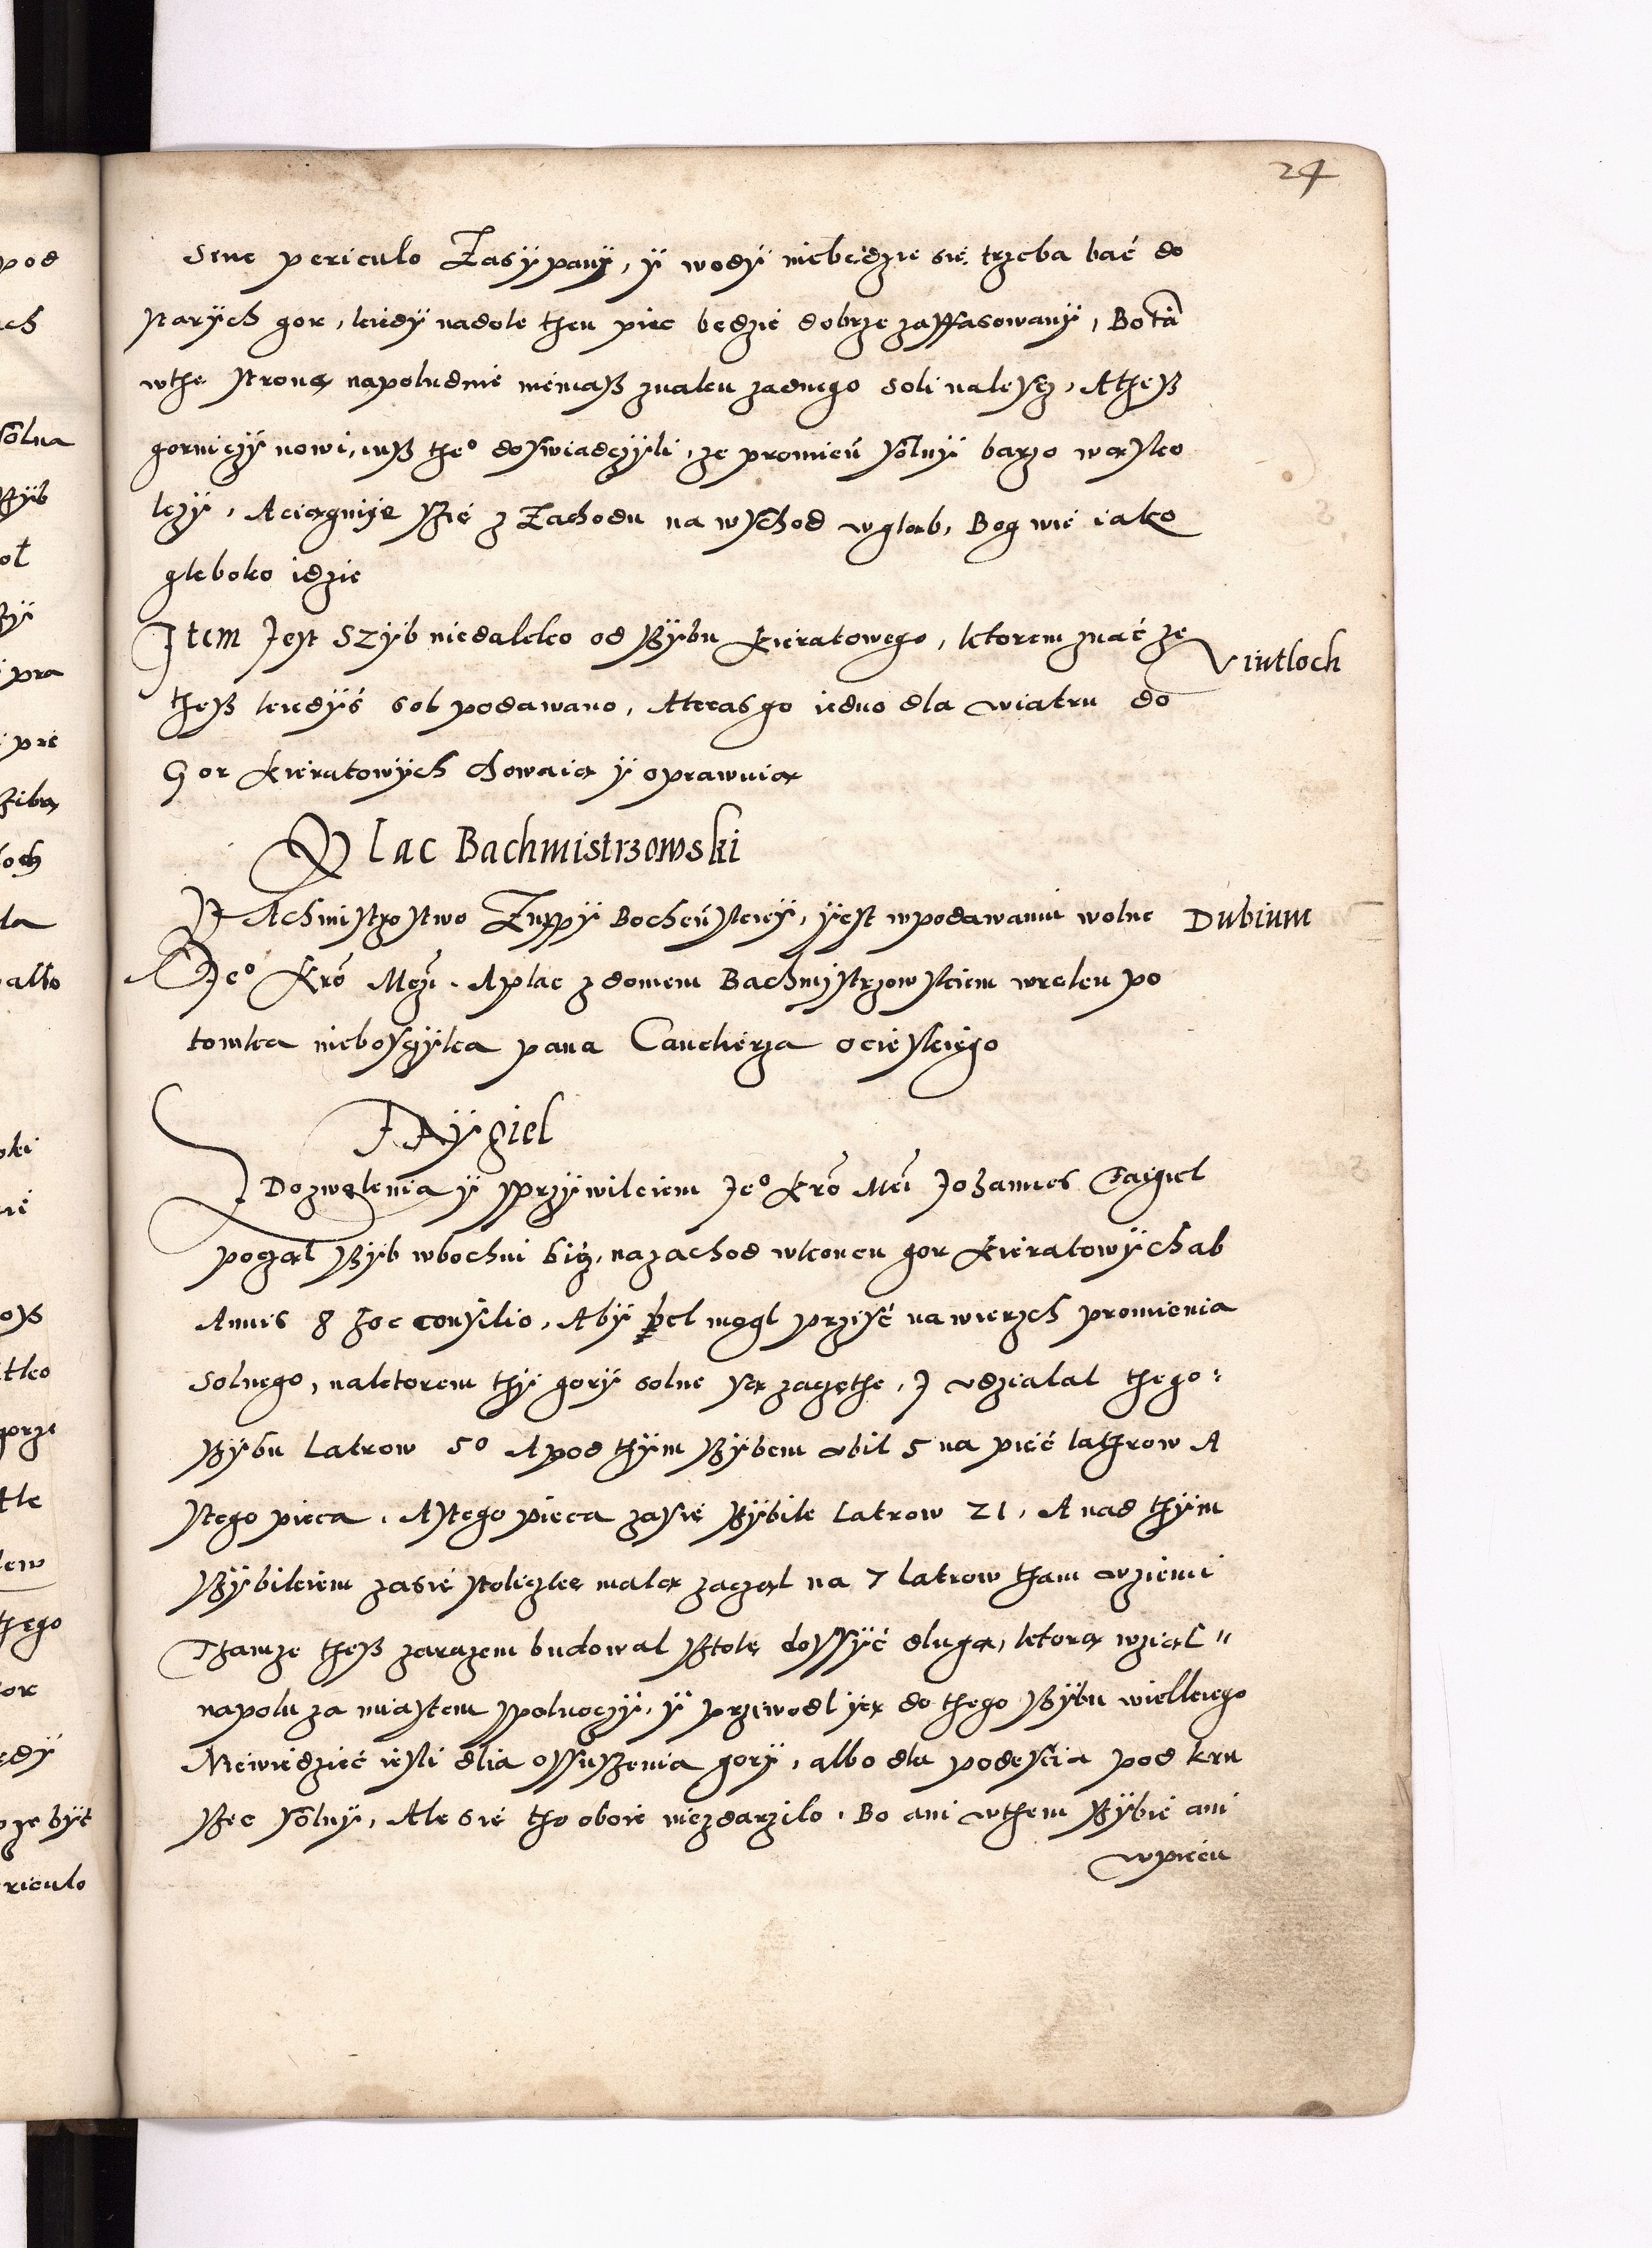 24
sine periculo Zasÿpanÿ, ÿ wodÿ niebędzie się trzeba bać do
starÿch gor, kiedÿ nadole then piec będzie dobrze zaffasowanÿ, Bo tã
wthę stronę napołudnie niemasz znaku zadnego soli nalesz, A thesz
gorniczÿ nowi, iusz the° doswiadczÿli, ze promień solnÿ barzo wąsko
lezÿ, A ciągnije szię z Zachodu na wschod wgłąb, Bog wie iako
głęboko idzie
Item Jest Szÿb niedaleko od szÿbu kieratowego, ktorem znać ze
thesz kiedÿś sol podawano, A teras go iedno dla wiatru do
Gor kieratowÿch chowaią ÿ oprawuią
Vintloch
Plac Bachmistrzowski
BAchmistrzostwo Zuppÿ Bocheńskieÿ, ÿest wpodawaniu wolne
Je° Kró Mczi. A plac z domem Bachmistrzowskiem wręku po
tomka nieboszczÿka pana Canclierza ocieskiego
Dubium
TAÿgiel
Z Dozwolenia ÿ sprzÿwileiem Je° Kró Mći Johannes Taigiel
począł szÿb wbochni bicz, nazachod wkoncu gor kieratowÿch ab
Annis 8 hoc consilio, Abÿ bel mogl przisć nawierzch promienia
Solnego, naktorem thÿ gorÿ solne są zaczęthe, J udzialal thego:
szÿbu Latrow 50 A pod thÿm szÿbem ubil 5 na pięć lathrow A
stego pieca, A stego pieca zasię szÿbike Latrow 21, A nad thÿm
szÿbikiem zasię stoliczkę małą zaczął na 7 latrow tham wziemi
Thamze thesz zarazem budowal sztolę dossÿć długą, ktorą wziął "
napolu za miastem spolnoczÿ, ÿ przewodl ją do thego szÿbu wielkiego
Niewiedzieć iesli dlia ossuszenia gorÿ, albo dla podeścia pod kru
szec solnÿ, Ale się tho oboie niezdarzilo. Bo ani wthem szÿbie ani
wpiecu